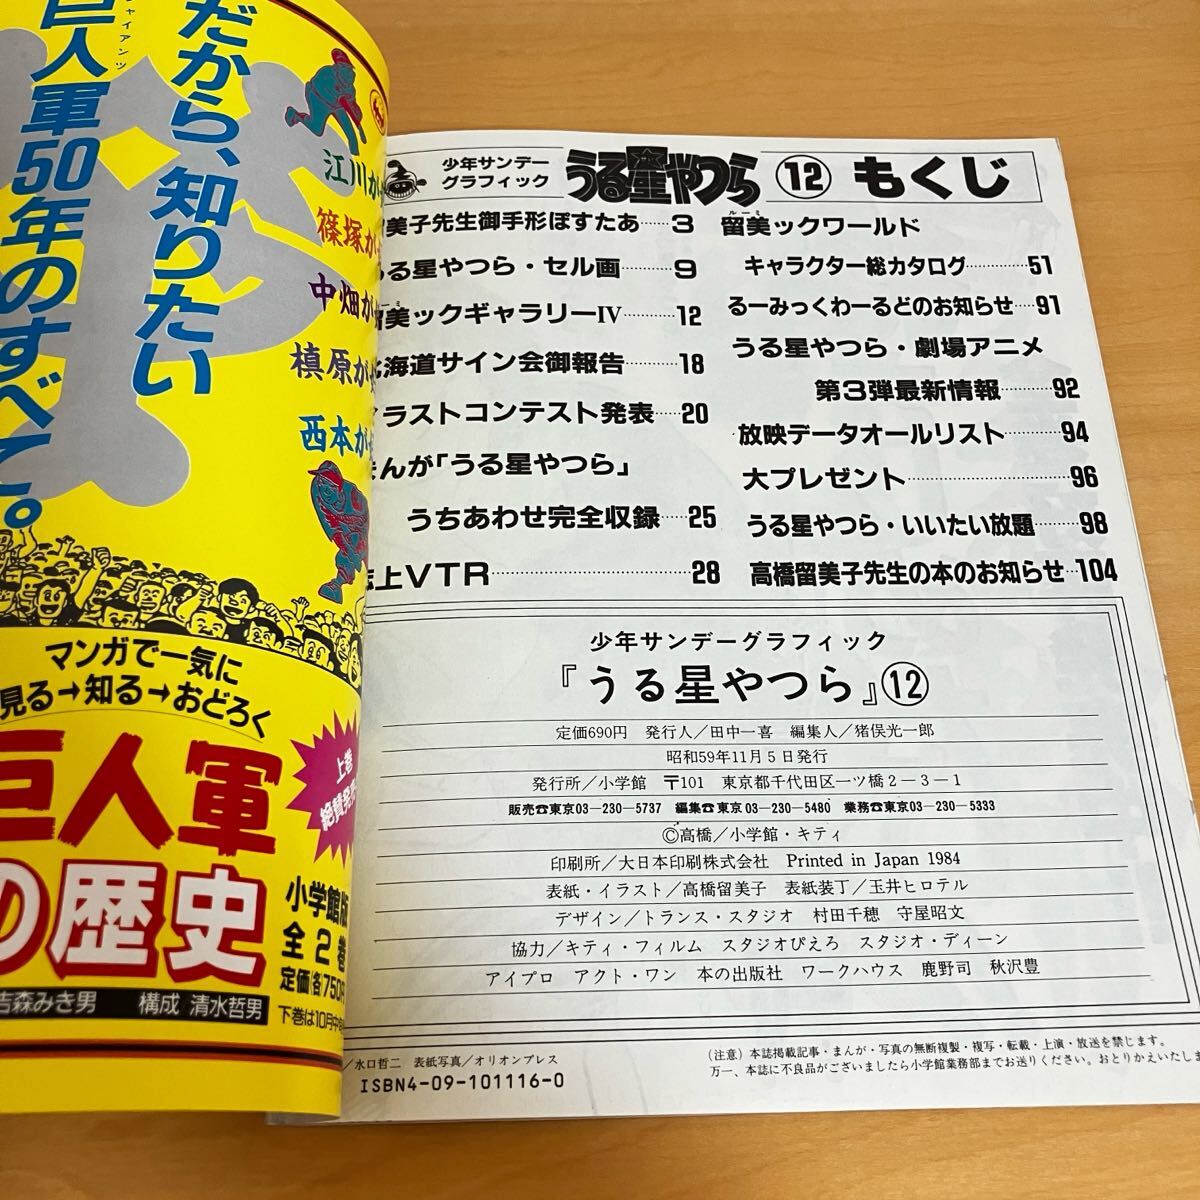 だから、知りたい
巨人軍50年のすべて。
ジャイアンツ
江川が
篠塚が
中畑が
槙原が
西本が
マンガで一気に
見る→知る→おどろく
巨人軍
の歴史
上巻
絶賛発売
小学館版
全2巻
定価(各)750円
下巻は10月中旬
吉森みき男 構成 清水哲男
少年サンデー
グラフィック
うる星やつら ⑫ もくじ
美子先生御手形ぽすたあ……3
うる星やつら・セル画………9
留美ックギャラリーIV………12
北海道サイン会御報告……18
イラストコンテスト発表……20
まんが「うる星やつら」
うちあわせ完全収録……25
誌上VTR……………………28
ルーミ
留美ックワールド
キャラクター総カタログ…………51
るーみっくわーるどのお知らせ……91
うる星やつら・劇場アニメ
第3弾最新情報………92
放映データオールリスト………94
大プレゼント……………………96
うる星やつら・いいたい放題………98
高橋留美子先生の本のお知らせ…104
少年サンデーグラフィック
『うる星やつら』⑫
定価690円 発行人／田中一喜 編集人／猪俣光一郎
昭和59年11月5日発行
発行所／小学館 〒101 東京都千代田区一ツ橋2－3－1
販売☎東京03－230－5737 編集☎東京03－230－5480 業務☎東京03－230－5333
©高橋／小学館・キティ
印刷所／大日本印刷株式会社 Printed in Japan 1984
表紙・イラスト／高橋留美子 表紙装丁／玉井ヒロテル
デザイン／トランス・スタジオ 村田千穂 守屋昭文
協力／キティ・フィルム スタジオぴえろ スタジオ・ディーン
アイプロ アクト・ワン 本の出版社 ワークハウス 鹿野司 秋沢豊
／水口哲二 表紙写真／オリオンプレス
ISBN4-09-101116-0
（注意）本誌掲載記事・まんが・写真の無断複製・複写・転載・上演・放送を禁じます。
万一、本誌に不良品がございましたら小学館業務部までお送りください。おとりかえいたしま